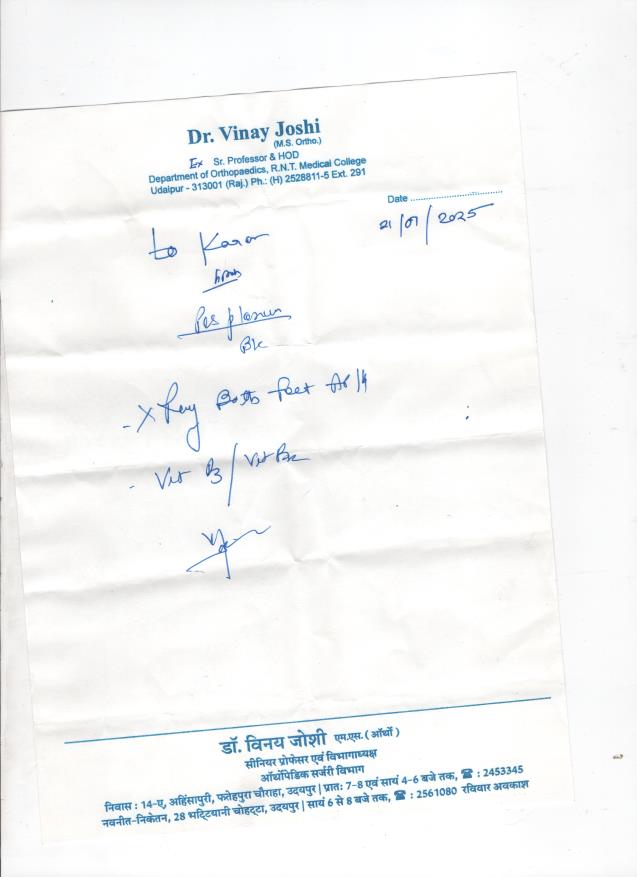 Dr. Vinay Joshi
(M.S. Ortho.)
Ex Sr. Professor & HOD
Department of Orthopaedics, R.N.T. Medical College
Udaipur - 313001 (Raj.) Ph.: (H) 2528811-5 Ext. 291
Date ................................
21/01/2025
to Karan
Pes planus
- X Ray Both feet AP/
- Vit D3/Vit B12
डॉ. विनय जोशी एम.एस. ( ऑर्थो )
सीनियर प्रोफेसर एवं विभागाध्यक्ष
ऑर्थोपेडिक सर्जरी विभाग
निवास : 14-ए, अहिंसापुरी, फतेहपुरा चौराहा, उदयपुर | प्रातः 7-8 एवं सायं 4-6 बजे तक, ☎ : 2453345
नवनीत-निकेतन, 28 भट्टियानी चोहट्टा, उदयपुर | सायं 6 से 8 बजे तक, ☎ : 2561080 रविवार अवकाश